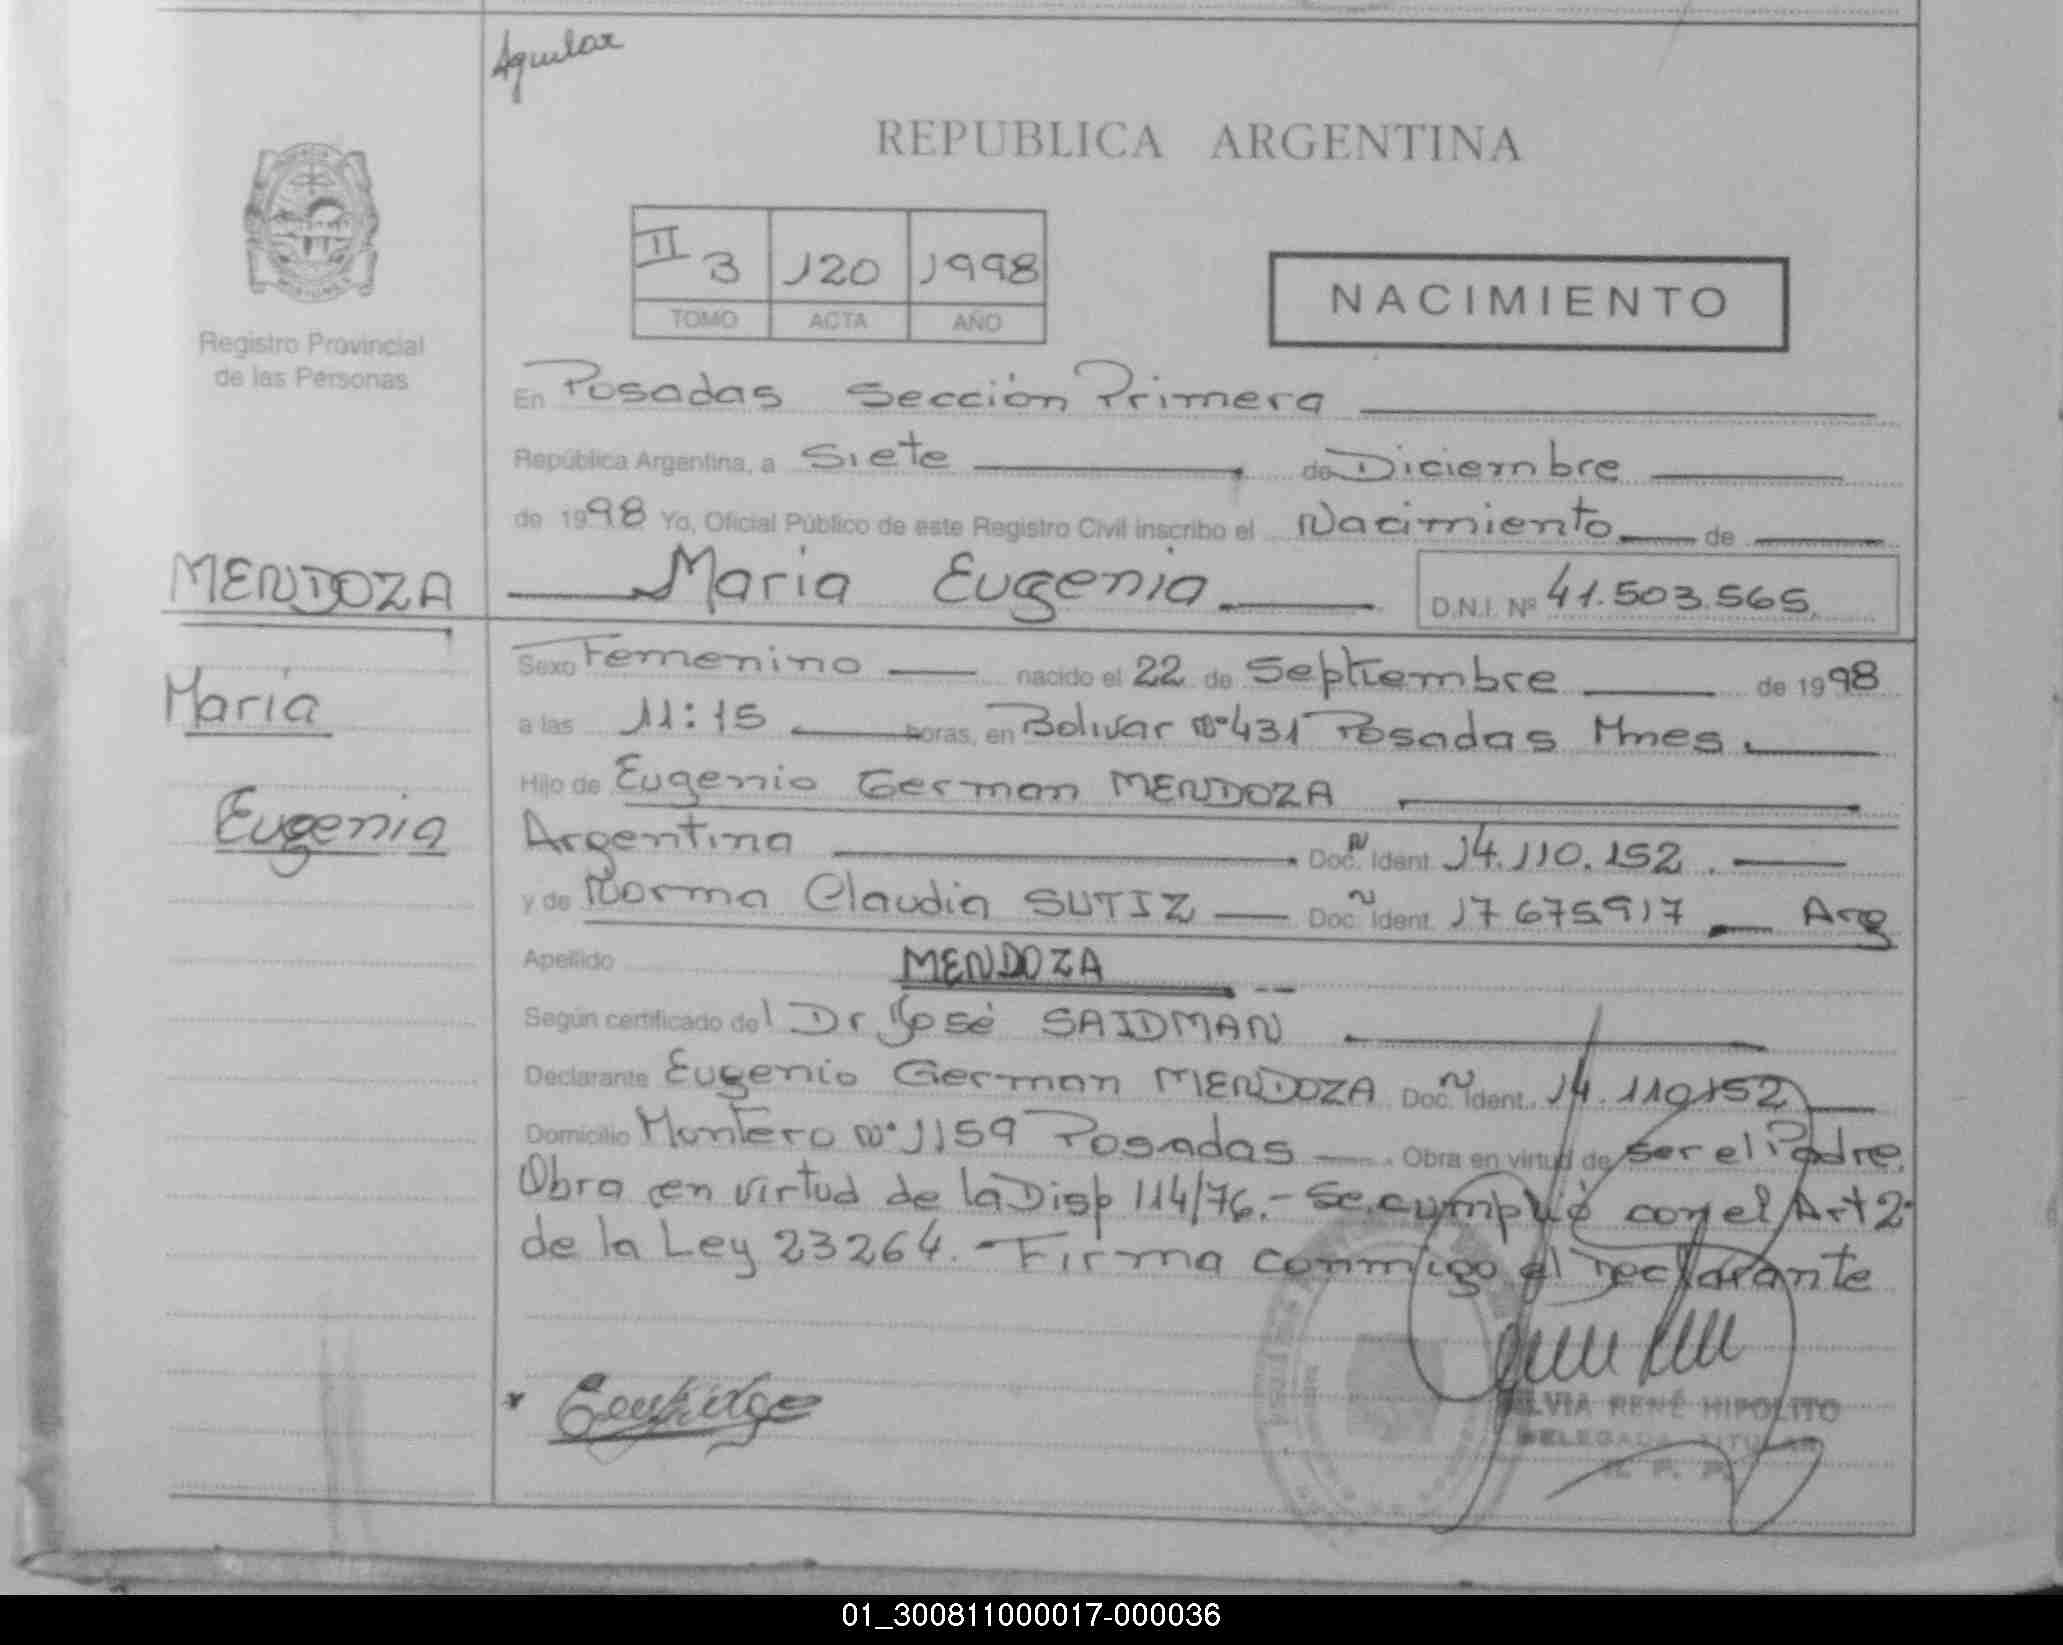 Aguilar
REPUBLICA ARGENTINA
II 3 120 1998
TOMO ACTA AÑO
NACIMIENTO
Registro Provincial
de las Personas
En Posadas Sección Primera
República Argentina, a Siete de Diciembre
de 1998 Yo, Oficial Público de este Registro Civil inscribo el Nacimiento de
MENDOZA
Maria Eugenia D.N.I. Nº 41.503.565
Maria
Eugenia
Sexo Femenino nacido el 22 de Septiembre de 1998
a las 11:15 horas, en Bolivar Nº 431 Posadas Mnes
Hijo de Eugenio German MENDOZA
Argentina Doc. Ident. 14.110.152
y de Norma Claudia SUTIZ Doc. Ident. 17675917 Arg
Apellido MENDOZA
Según certificado del Dr José SAIDMAN
Declarante Eugenio German MENDOZA Doc. Ident. 14.110152
Domicilio Montero Nº 1159 Posadas Obra en virtud de ser el Padre.
Obra en virtud de la Disp 114/76.- Se cumplió con el Art 2º
de la Ley 23264. - Firma conmigo el Declarante
LVIA RENÉ HIPOLITO
DELEGADA TITULAR
R. P. P.
01_300811000017-000036